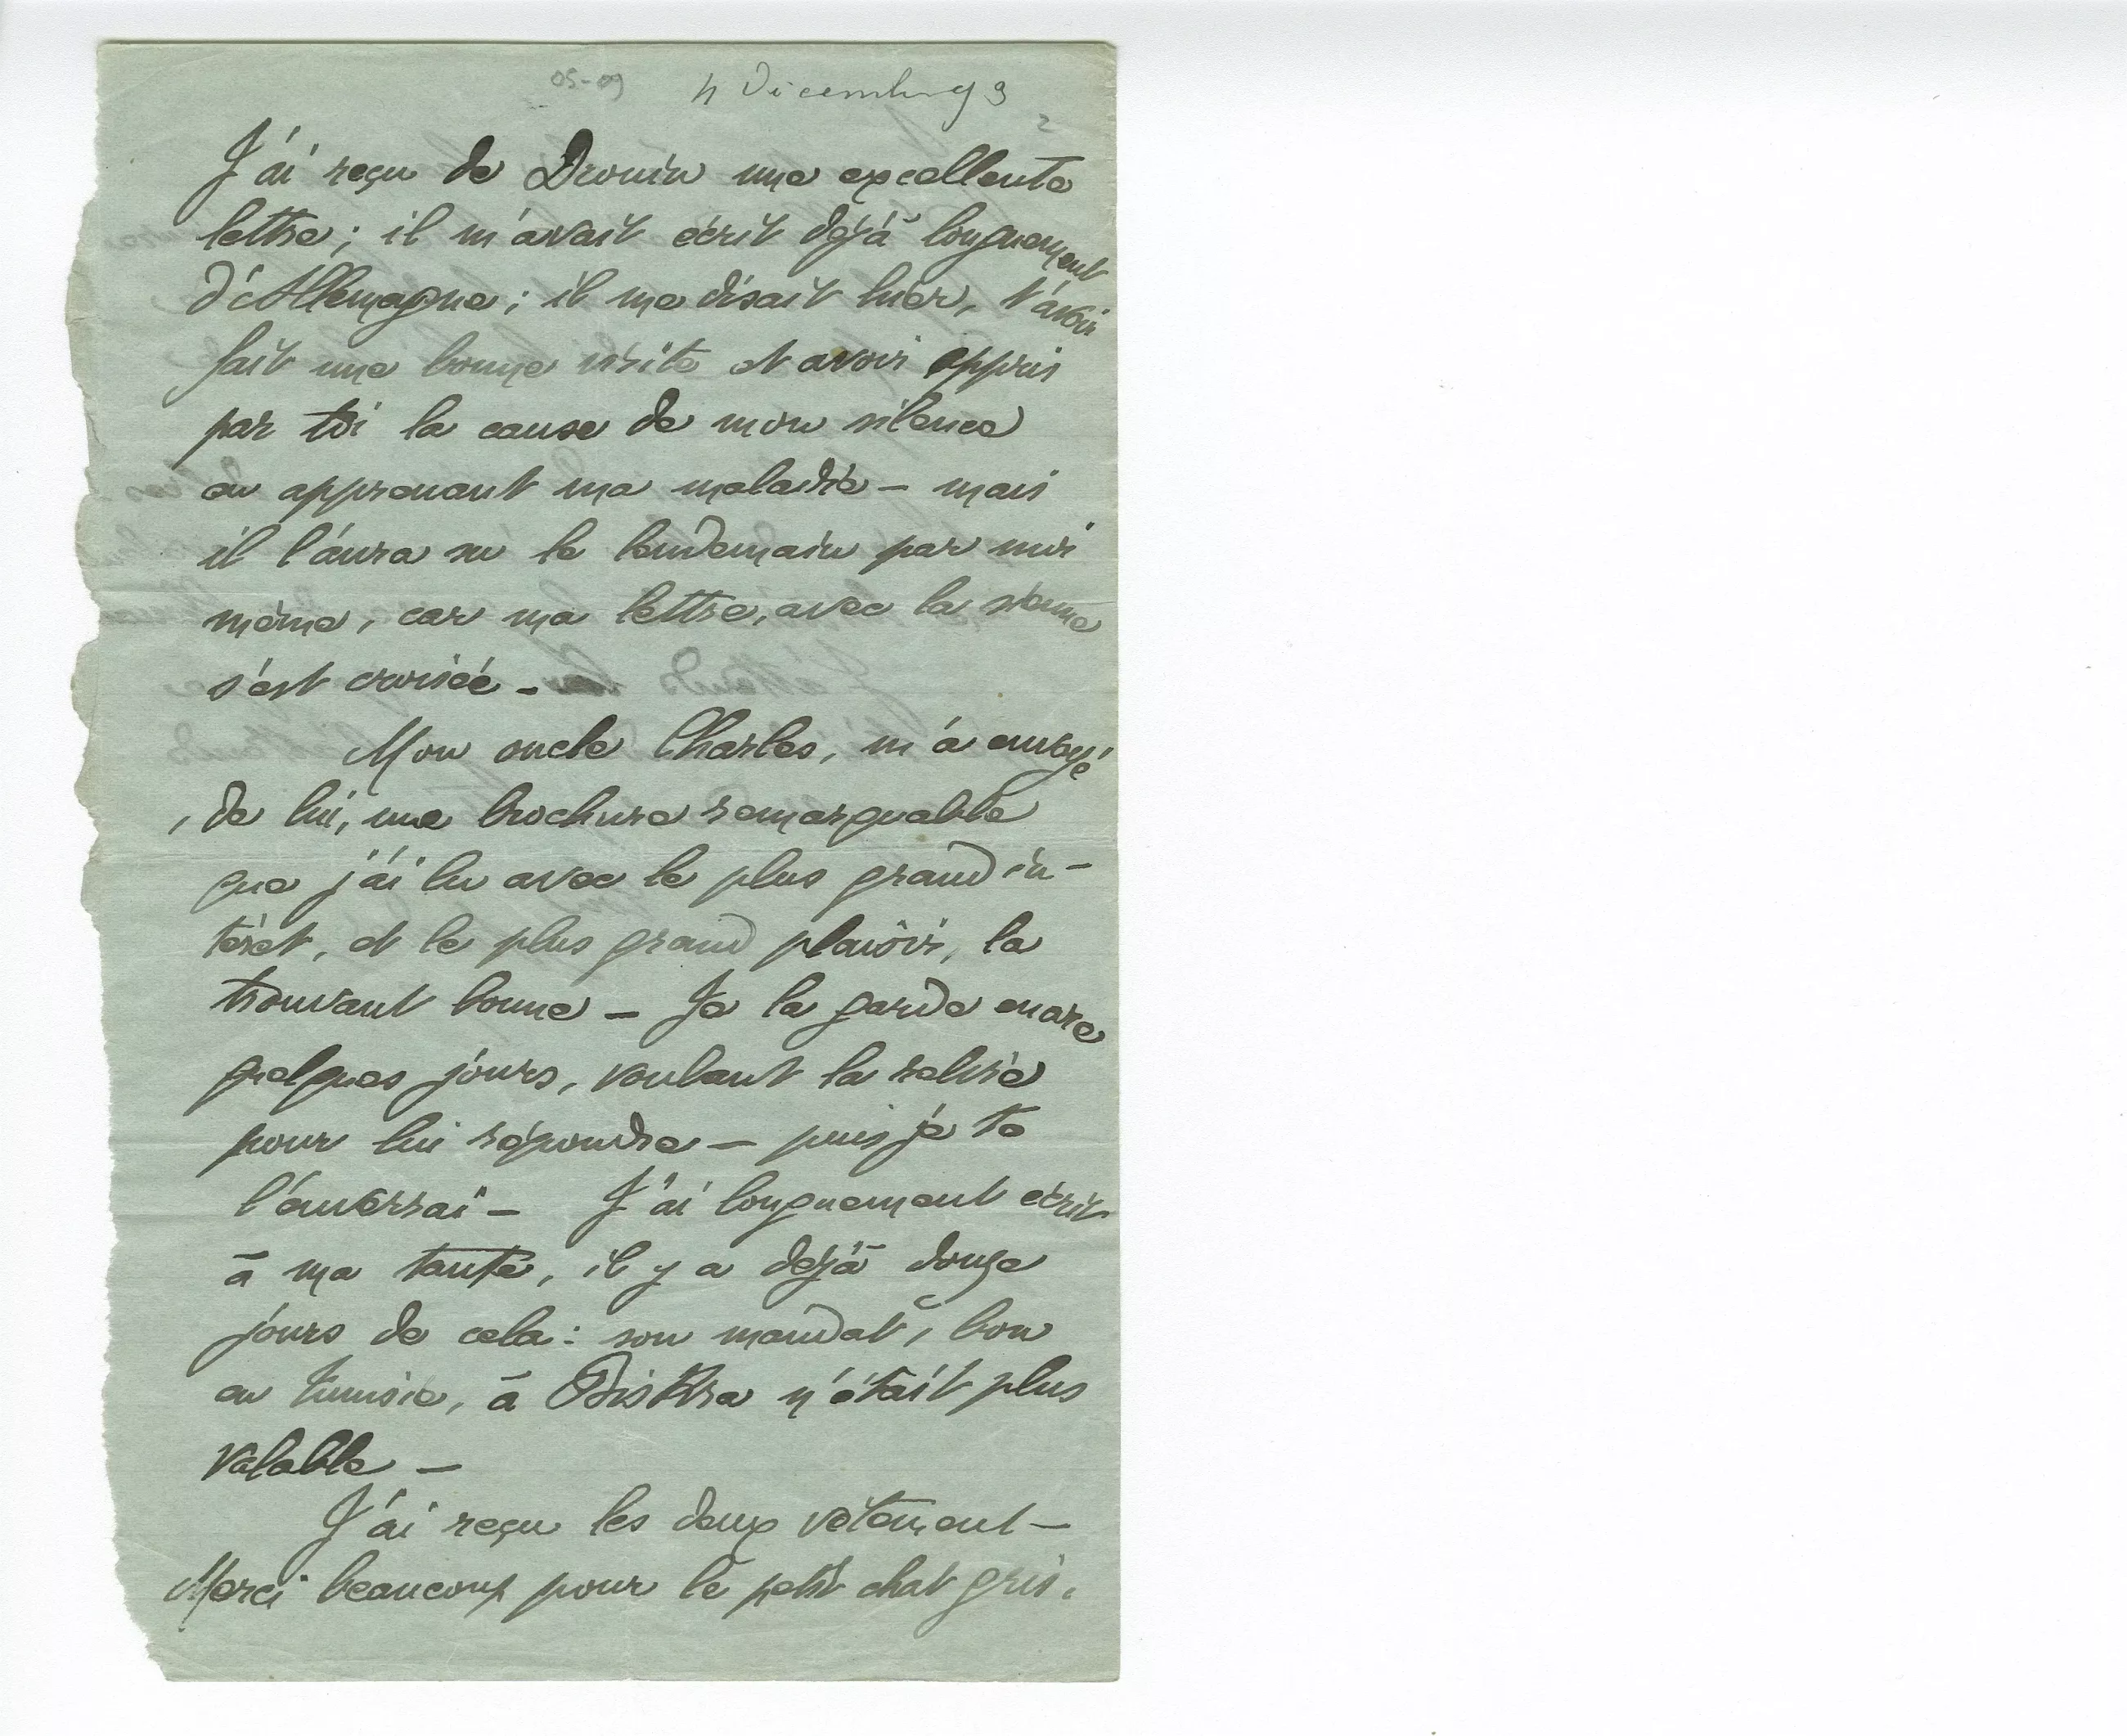 05-09
4 Décembre 93
2
J'ai reçu de Drouin une excellente
lettre ; il m'avait écrit déjà longuement
d'Allemagne ; il me disait hier, t'avoir
fait une bonne visite et avoir appris
par toi la cause de mon silence
en apprenant ma maladie – mais
il l'aura su le lendemain par moi
même, car ma lettre, avec la sienne
s'est croisée –
Mon oncle Charles, m'a envoyé
, de lui, une brochure remarquable
que j'ai lu avec le plus grand in-
térêt, et le plus grand plaisir, la
trouvant bonne – Je la garde encore
quelques jours, voulant la relire
pour lui répondre – puis je te
l'enverrai – J'ai longuement écrit
à ma tante, il y a déjà douze
jours de cela : son mandat, bon
en Tunisie, à Biskra n'était plus
valable –
J'ai reçu les deux vêtement –
Merci beaucoup pour le petit chat gris.